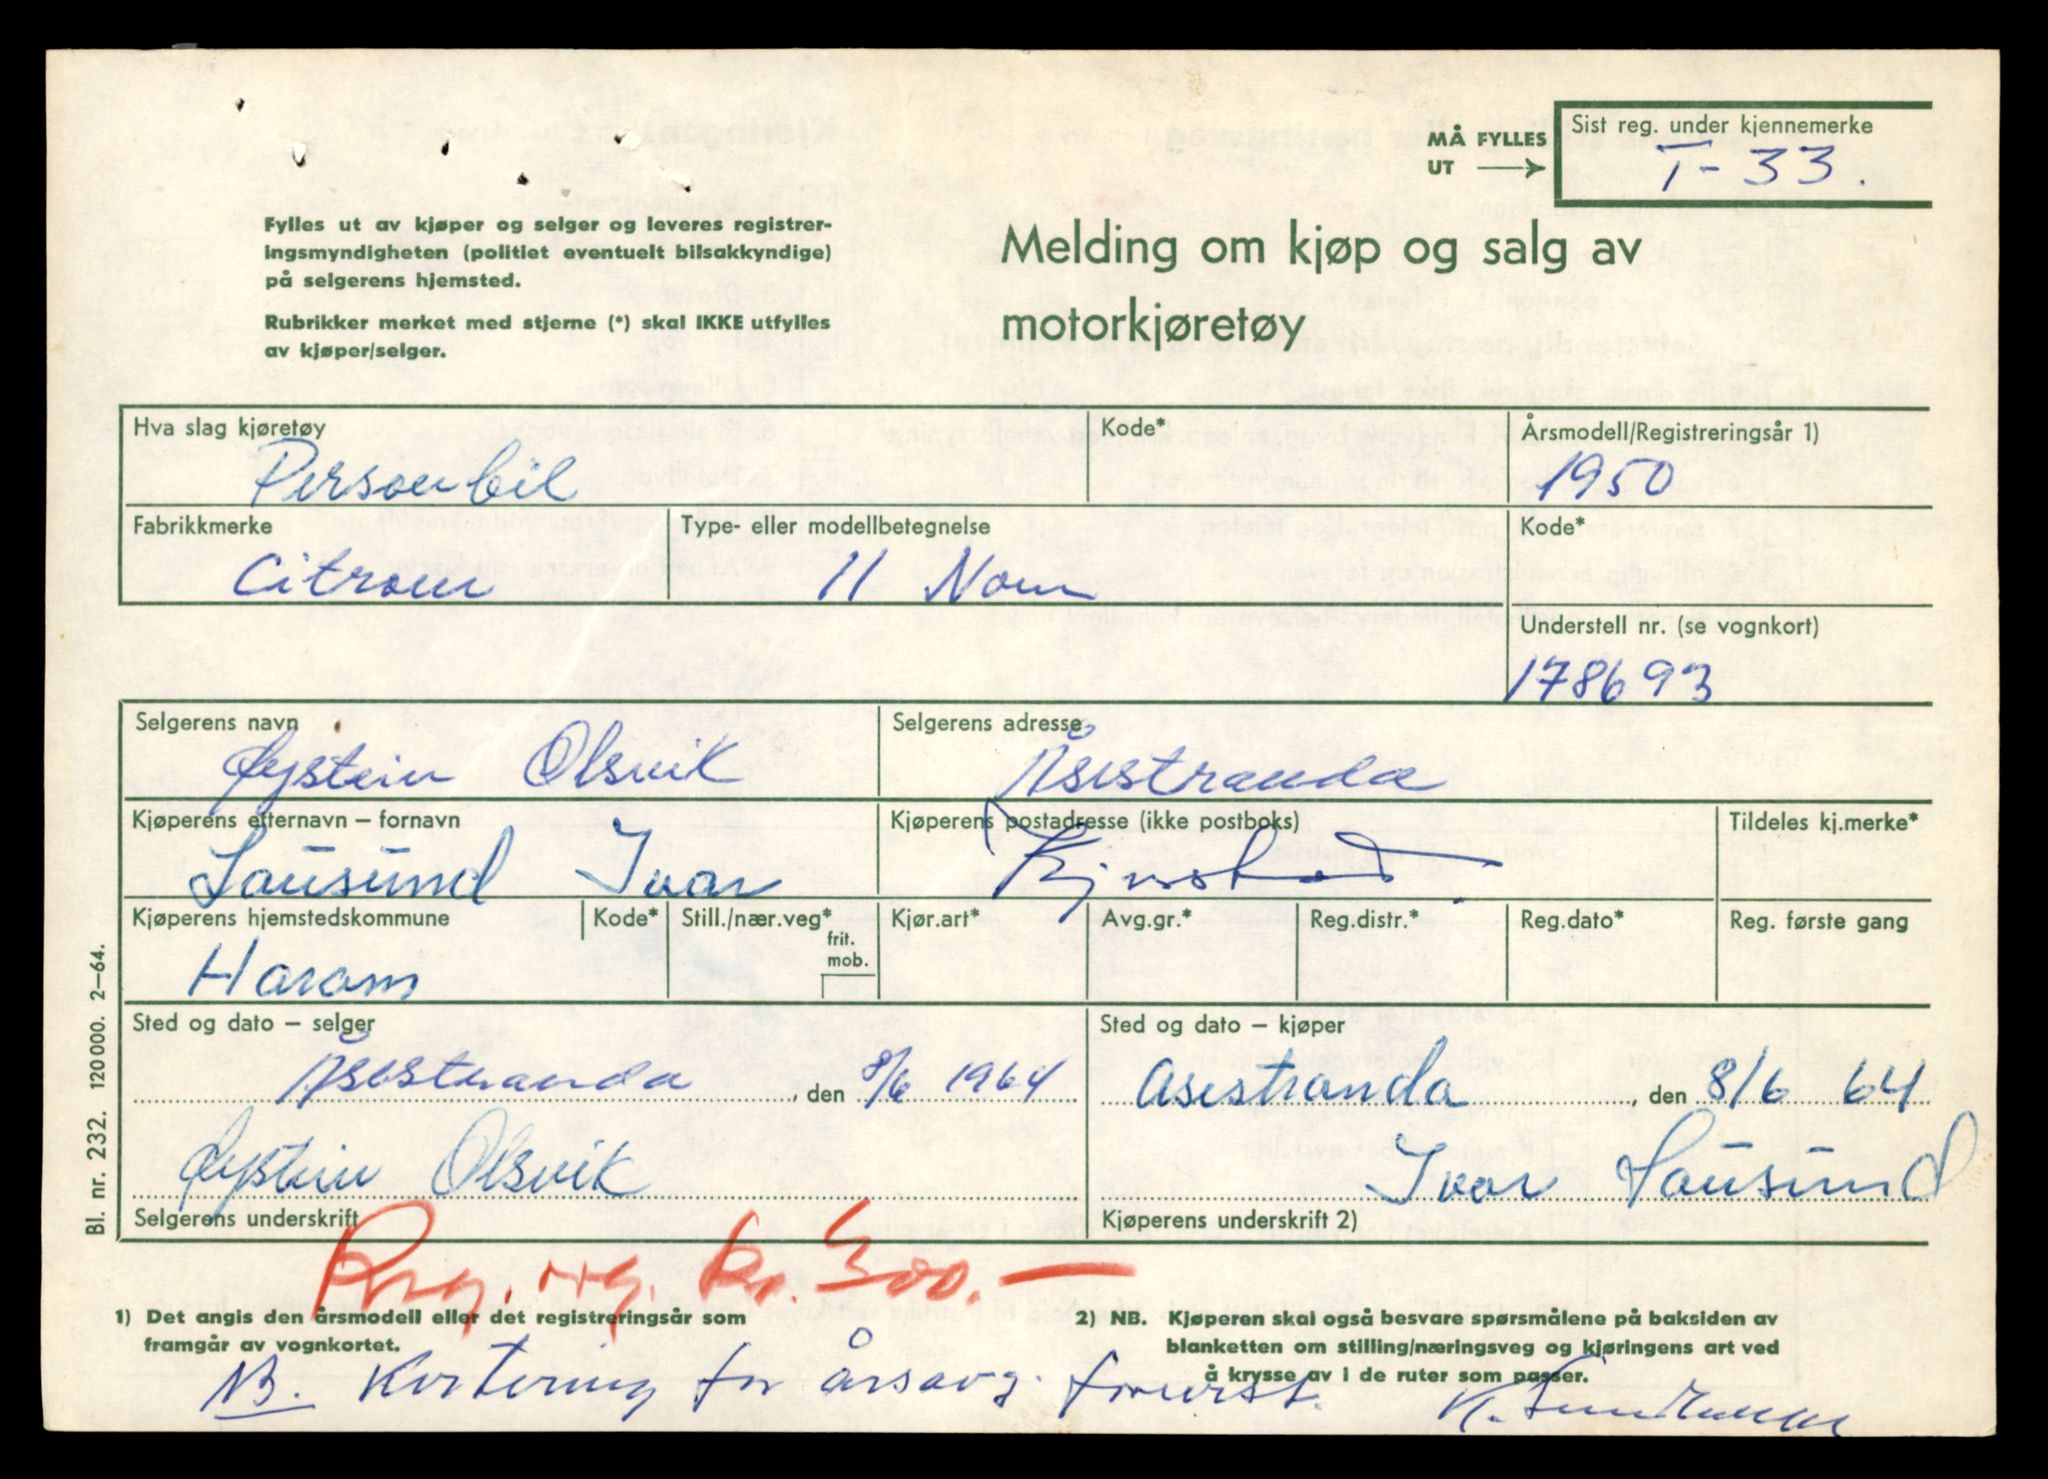 MÅ FYLLES UT
Sist reg. under kjennemerke
T-33.
Fylles ut av kjøper og selger og leveres registrer-
ingsmyndigheten (politiet eventuelt bilsakkyndige)
på selgerens hjemsted.
Rubrikker merket med stjerne (*) skal IKKE utfylles
av kjøper/selger.
Melding om kjøp og salg av
motorkjøretøy
Hva slag kjøretøy
Personbil
Kode*
Årsmodell/Registreringsår 1)
1950
Fabrikkmerke
Citroen
Type- eller modellbetegnelse
11 Norm
Kode*
Understell nr. (se vognkort)
178693
Selgerens navn
Øystein Olsvik
Selgerens adresse
Åsestranda
Kjøperens etternavn – fornavn
Lausund Ivar
Kjøperens postadresse (ikke postboks)
Tildeles kj.merke*
Kjøperens hjemstedskommune
Haram
Kode*
Still./nær.veg*
frit.
mob.
Kjør.art*
Avg.gr.*
Reg.distr.*
Reg.dato*
Reg. første gang
Sted og dato – selger
Åsestranda, den 8/6 1964
Sted og dato – kjøper
Asestranda, den 8/6 64
Øystein Olsvik
Selgerens underskrift
Ivar Lausund
Kjøperens underskrift 2)
Bl. nr. 232. 120 000. 2–64.
kr. 300.—
1) Det angis den årsmodell eller det registreringsår som
framgår av vognkortet.
2) NB. Kjøperen skal også besvare spørsmålene på baksiden av
blanketten om stilling/næringsveg og kjøringens art ved
å krysse av i de ruter som passer.
NB. Kvittering for årsavg. forevist.